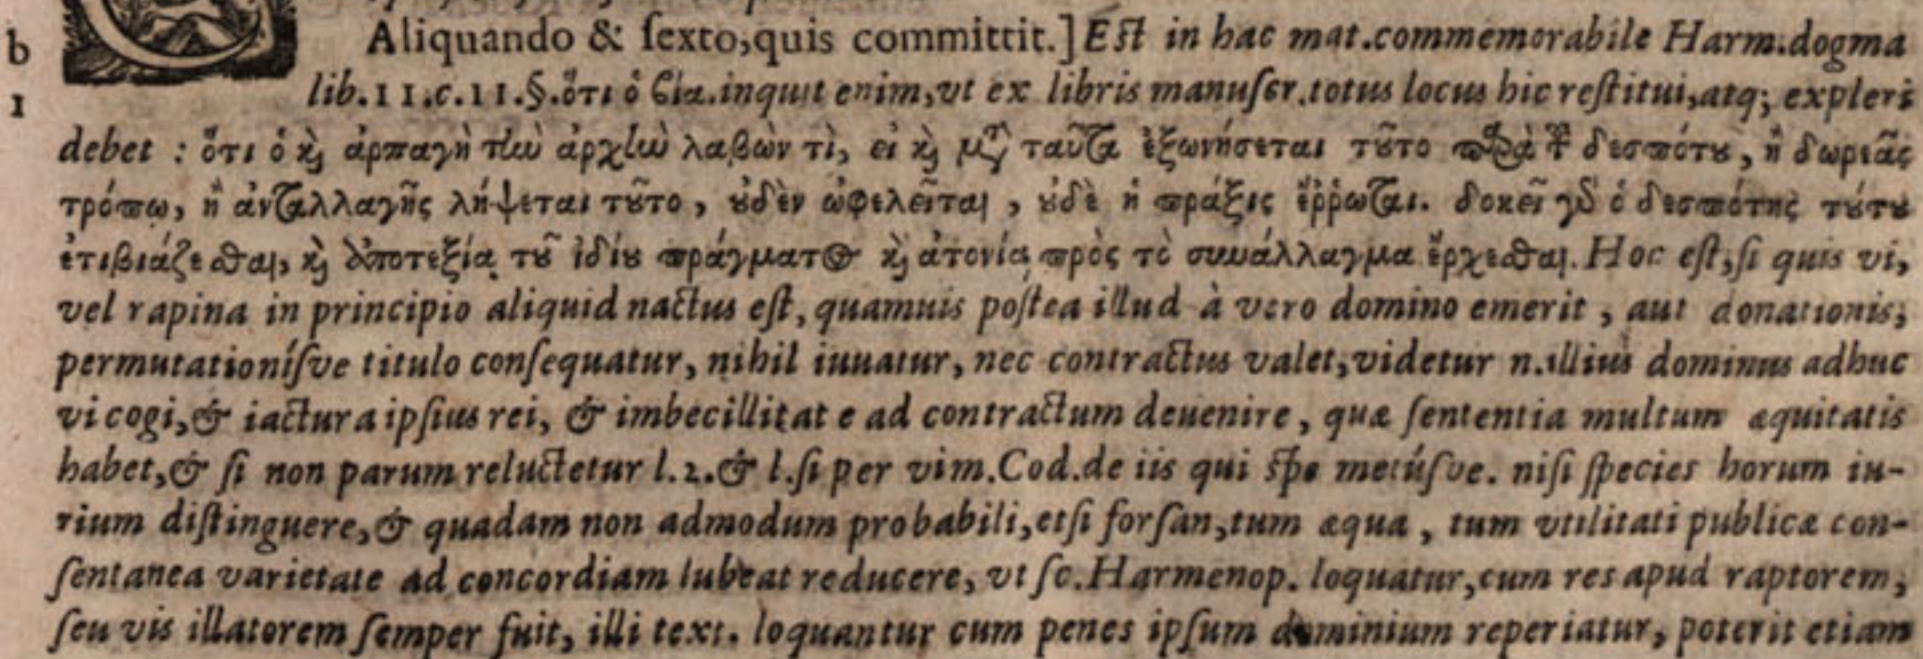 b Aliquando & ſexto,quis committit.] Eſt in hac mat.commemorabile Harm.dogma
1 lib.11.c.11.§.ὅτι ὁ βία.inquit enim,vt ex libris manuſcr.totus locus hic reſtitui,atq; expleri
debet : ὅτι ὁ κ̀ ἁρπαγὴ τἰὼ ἀρχἰὼ λαβὼν τὶ, εἰ κ̀ μζ ταῦτα ἐξωνήσεται τȣ͂το παρὰ τ͂ δεσπότȣ, ἢ δωρεᾶς
τρόπω, ἢ ἀνταλλαγῆς λήψεται τȣ͂το, ȣδὲν ὠφελεῖται, ȣδὲ ἡ πράξις ἔῤῥωται. δοκεῖ γὸ ὁ δεσπότης τȣ́τȣ
ἐτιβιάζεσθαι, κ̀ ἀποτεξίᾳ τȣ͂ ἰδίȣ πράγματος κ̀ ἀτονίᾳ πρὸς τὸ συνάλλαγμα ἔρχεσθαι. Hoc eſt,ſi quis vi,
vel rapina in principio aliquid nactus eſt, quamuis poſtea illud à vero domino emerit , aut donationis,
permutationíſve titulo conſequatur, nihil iuuatur, nec contractus valet,videtur n.illius dominus adhuc
vi cogi,& iactura ipſius rei, & imbecillitate ad contractum deuenire, quæ ſententia multum æquitatis
habet,& ſi non parum reluctetur l.2.& l.ſi per vim.Cod.de iis qui ſpe metúſve. niſi ſpecies horum iu-
rium diſtinguere,& quadam non admodum probabili,etſi forſan,tum æqua , tum vtilitati publicæ con-
ſentanea varietate ad concordiam lubeat reducere, vt ſc.Harmenop. loquatur,cum res apud raptorem,
ſeu vis illatorem ſemper fuit, illi text. loquantur cum penes ipſum dominium reperiatur, poterit etiam